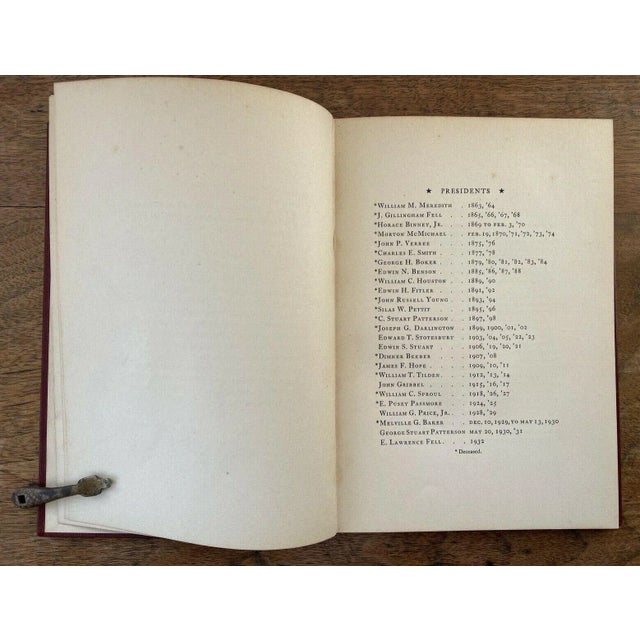 ★ PRESIDENTS ★
*WILLIAM M. MEREDITH . . 1863, '64
*J. GILLINGHAM FELL . . . 1865, '66, '67, '68
*HORACE BINNEY, JR. . . . 1869 TO FEB. 3, '70
*MORTON MCMICHAEL . . . FEB. 19, 1870, '71, '72, '73, '74
*JOHN P. VERREE . . . 1875, '76
*CHARLES E. SMITH . . . 1877, '78
*GEORGE H. BOKER . . . 1879, '80, '81, '82, '83, '84
*EDWIN N. BENSON . . . 1885, '86, '87, '88
*WILLIAM C. HOUSTON . . 1889, '90
*EDWIN H. FITLER . . . 1891, '92
*JOHN RUSSELL YOUNG . . 1893, '94
*SILAS W. PETTIT . . . 1895, '96
*C. STUART PATTERSON . . 1897, '98
*JOSEPH G. DARLINGTON . . 1899, 1900, '01, '02
EDWARD T. STOTESBURY . . 1903, '04, '05, '22, '23
EDWIN S. STUART . . . 1906, '19, '20, '21
*DIMNER BEEBER . . . 1907, '08
*JAMES F. HOPE . . . 1909, '10, '11
*WILLIAM T. TILDEN . . . 1912, '13, '14
JOHN GRIBBEL . . . 1915, '16, '17
*WILLIAM C. SPROUL . . . 1918, '26, '27
*E. PUSEY PASSMORE . . . 1924, '25
WILLIAM G. PRICE, JR. . . 1928, '29
*MELVILLE G. BAKER . . . DEC. 10, 1929, TO MAY 13, 1930
GEORGE STUART PATTERSON MAY 20, 1930, '31
E. LAWRENCE FELL . . . 1932
*Deceased.